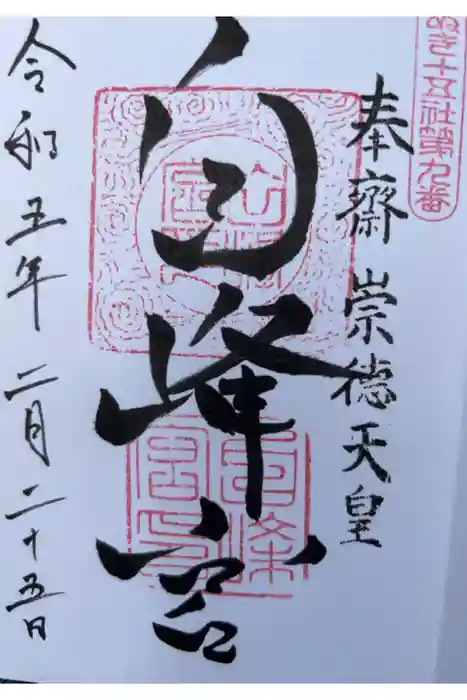 ぬき十五社第九番
奉齋 崇徳天皇
白峰宮
令和五年二月二十五日